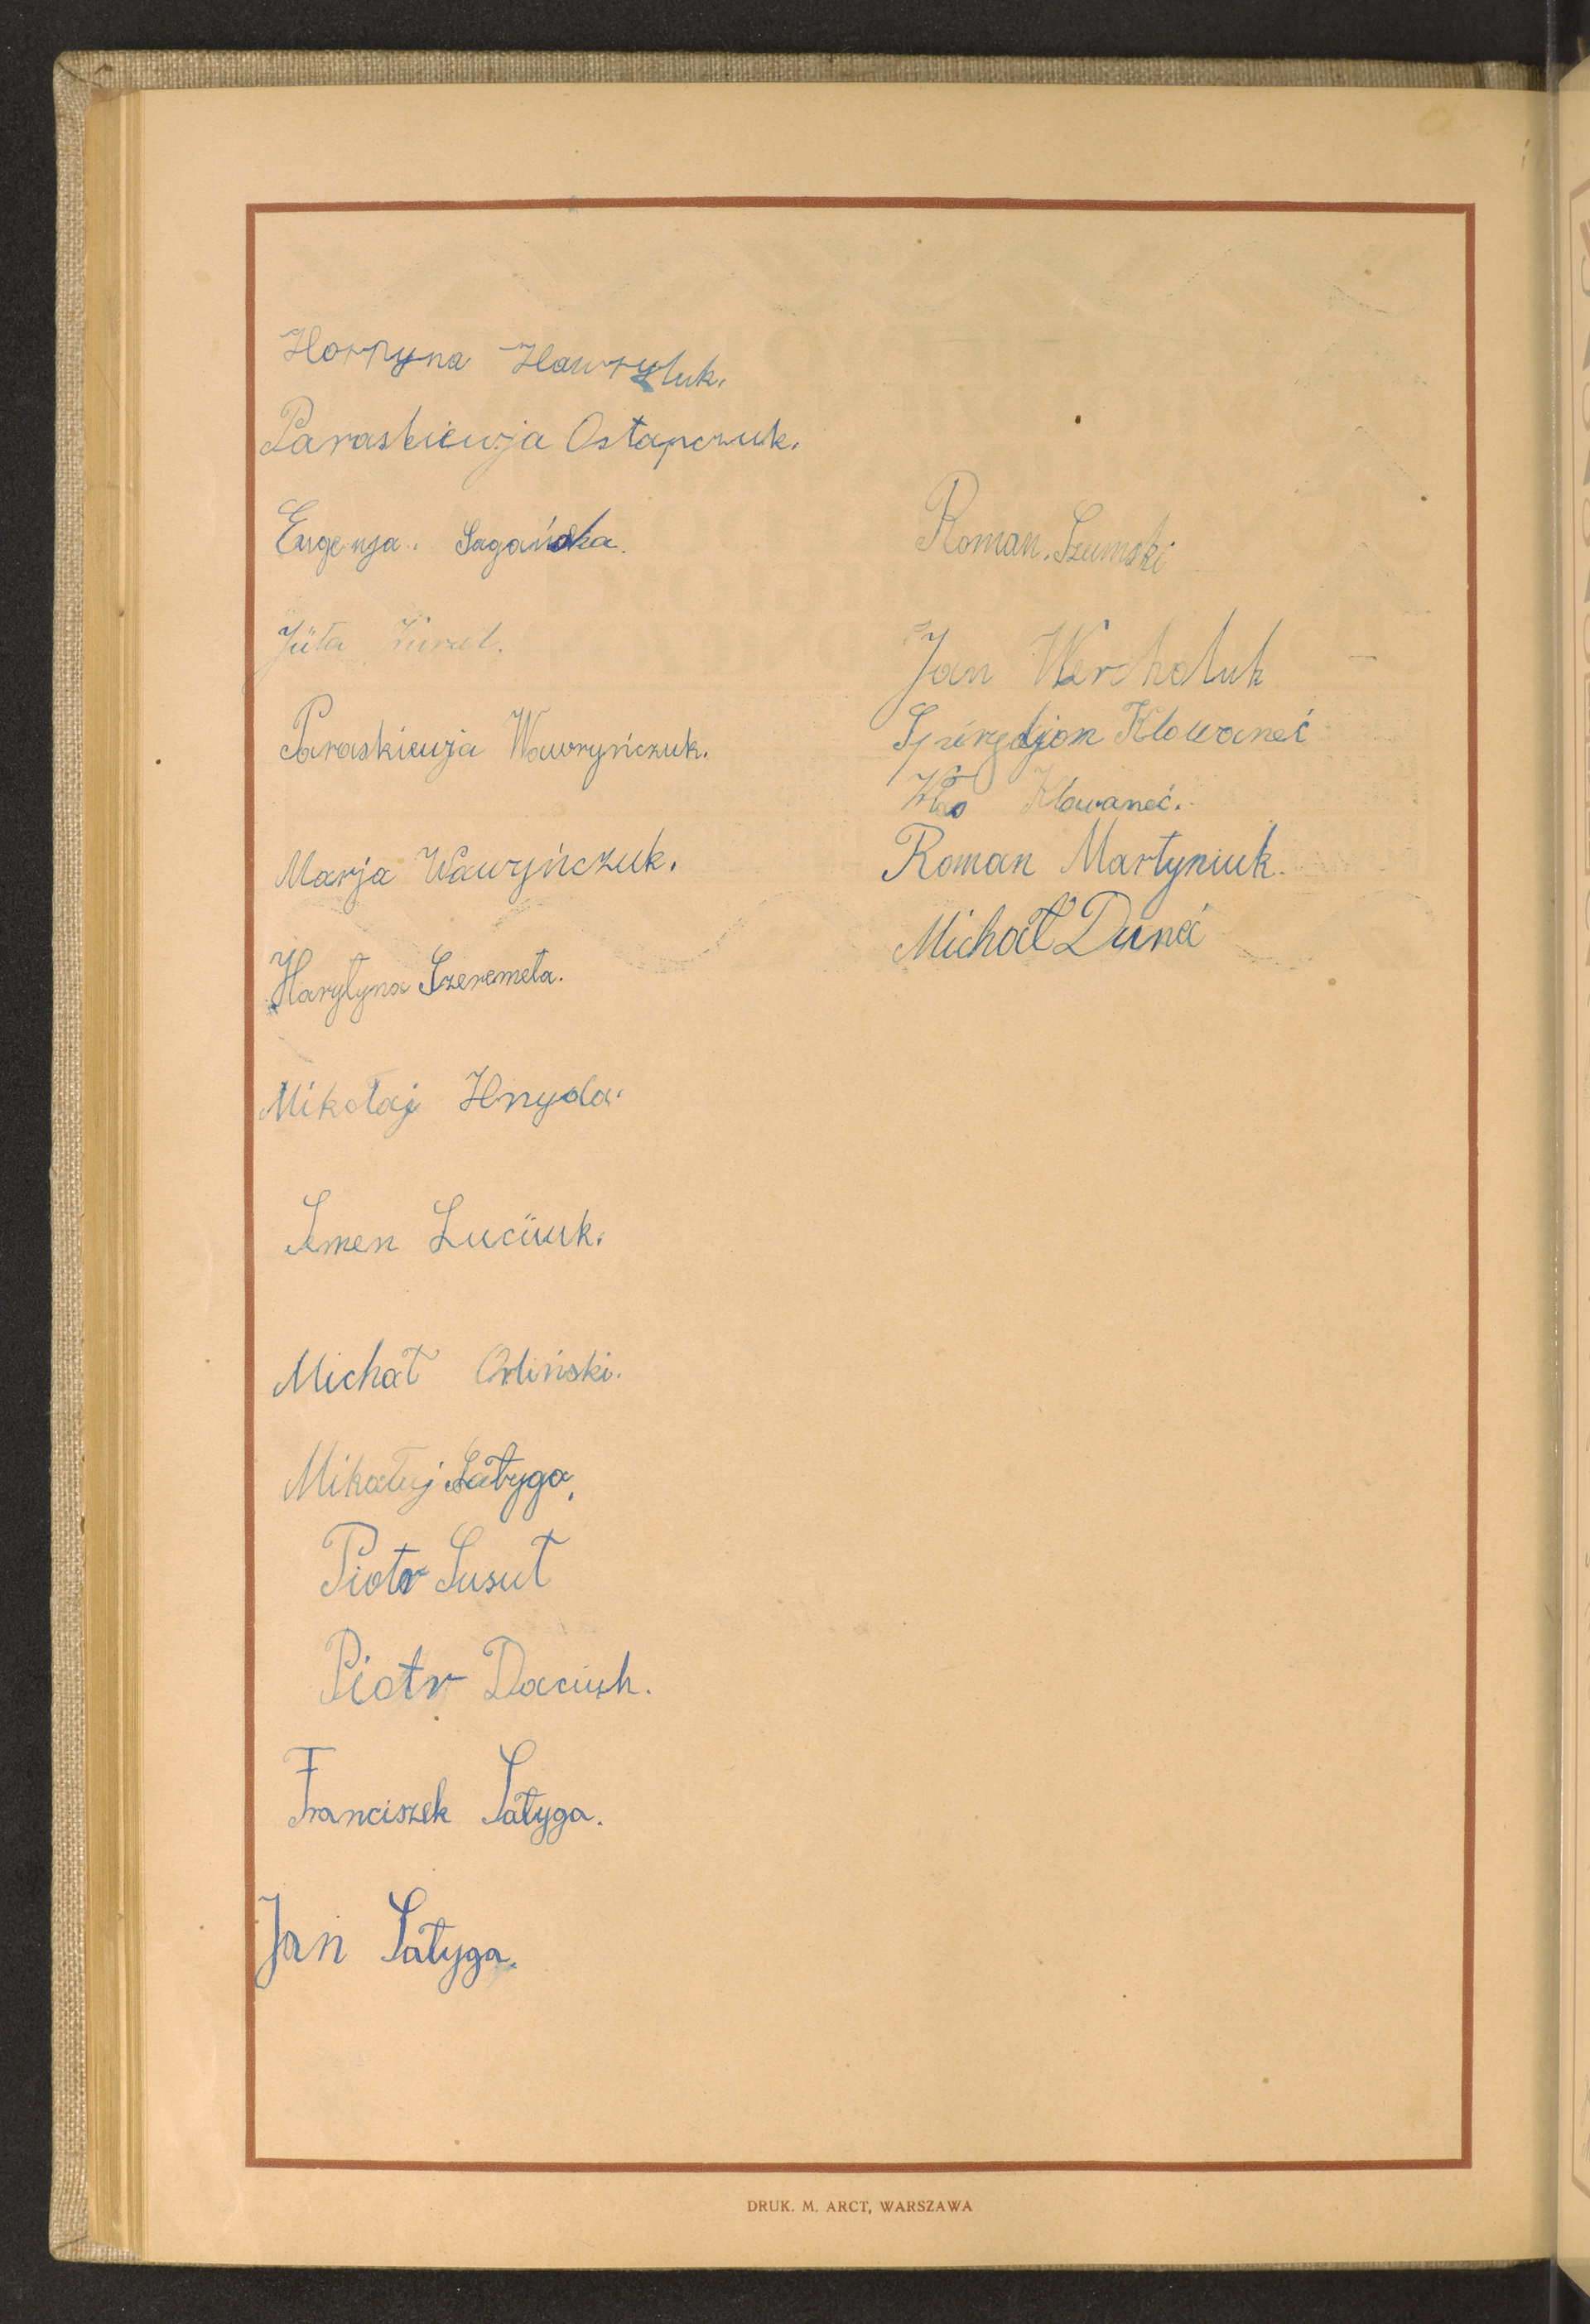 Horpyna Hawryluk.
Paraskiewja Ostapczuk.
Eugenja. Sagańska.
Jüta
Paraskiewja Wawryńczuk.
Marja Wawryńczuk.
Harytyna Szeremeta.
Mikołaj Hnyda.
Semen Luciuk.
Michał Orliński.
Mikołaj Sałyga,
Piotr Susuł
Piotr Daciuk.
Franciszek Sałyga.
Jan Sałyga.
Roman. Szumski
Jan Werholuk
Spirydjon Klowaneć
Klowaneć.
Roman Martyniuk.
Michał Duneć
DRUK. M. ARCT, WARSZAWA